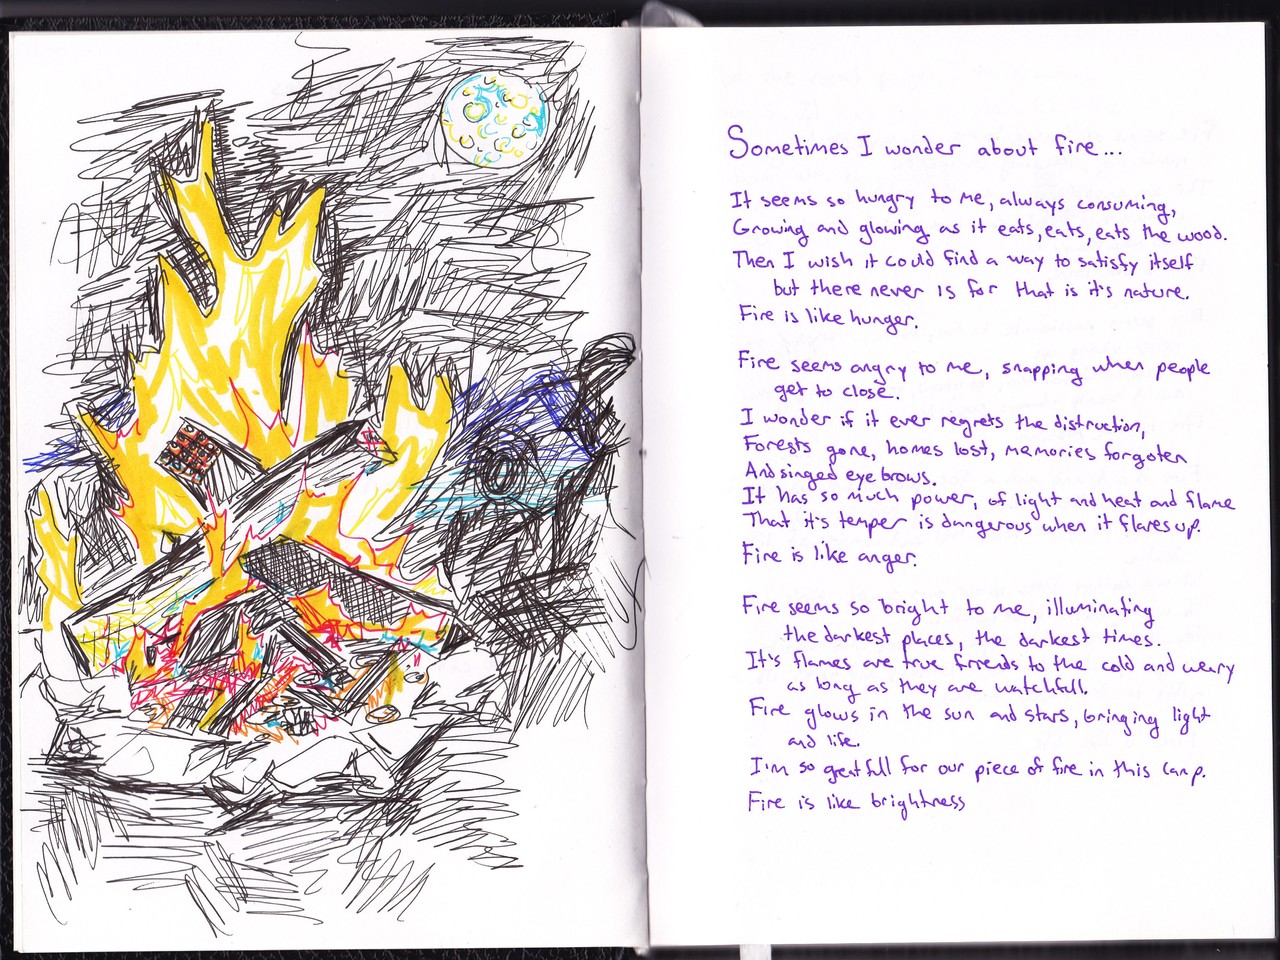 Sometimes I wonder about fire...
It seems so hungry to me, always consuming,
Growing and glowing as it eats, eats, eats the wood.
Then I wish it could find a way to satisfy itself
but there never is for that is it's nature.
Fire is like hunger.
Fire seems angry to me, snapping when people
get to close.
I wonder if it ever regrets the distruction,
Forests gone, homes lost, memories forgoten
And singed eyebrows.
It has so much power, of light and heat and flame
That it's temper is dangerous when it flares up.
Fire is like anger.
Fire seems so bright to me, illuminating
the darkest places, the darkest times.
It's flames are true friends to the cold and weary
as long as they are watchfull.
Fire glows in the sun and stars, bringing light
and life.
I'm so greatfull for our piece of fire in this camp.
Fire is like brightness